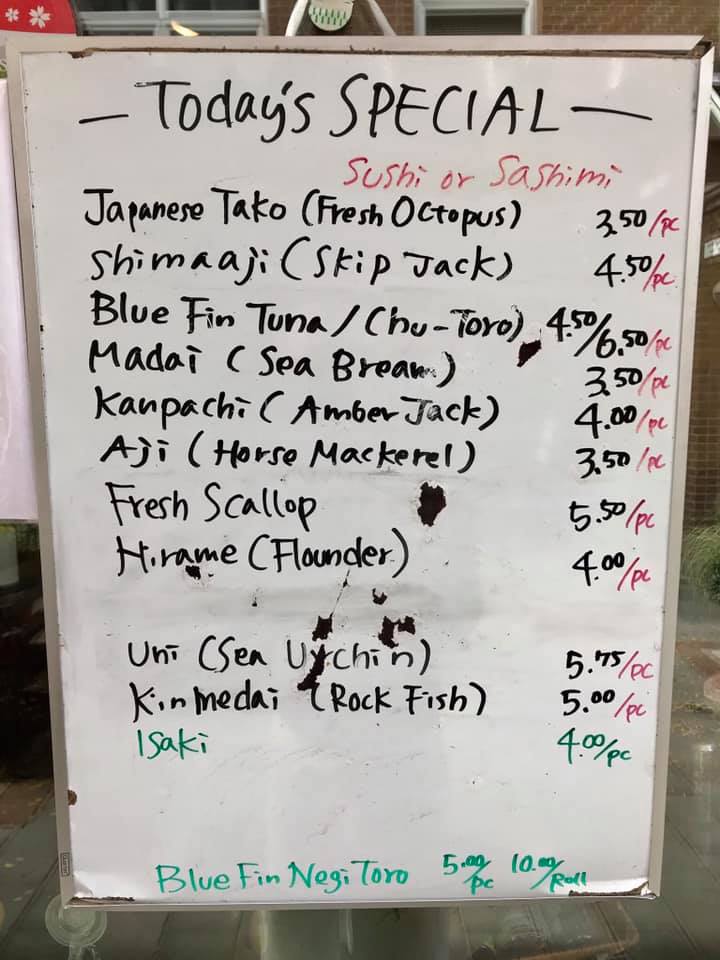 — Today's SPECIAL —
Sushi or Sashimi
Japanese Tako (Fresh Octopus) 3.50/pc
Shimaaji (Skip Jack) 4.50/pc
Blue Fin Tuna/(Chu-Toro) 4.50/6.50/pc
Madai (Sea Bream) 3.50/pc
Kanpachi (Amber Jack) 4.00/pc
Aji (Horse Mackerel) 3.50/pc
Fresh Scallop 5.50/pc
Hirame (Flounder) 4.00/pc
Uni (Sea Urchin) 5.75/pc
Kinmedai (Rock Fish) 5.00/pc
Isaki 4.00/pc
Blue Fin Negi Toro 5.00/pc 10.00/Roll